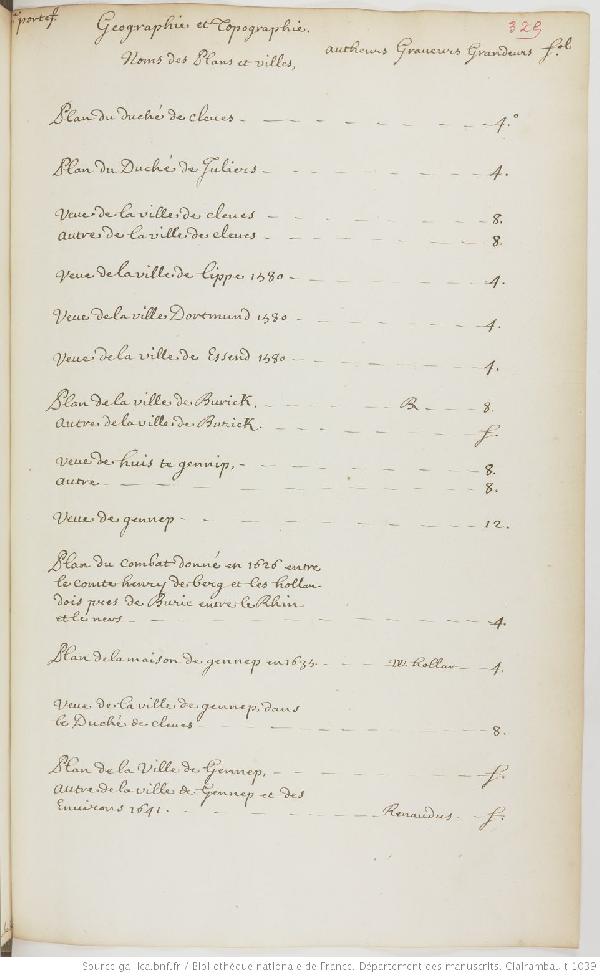 portef. Geographie et Topographie. 325
Noms des Plans et villes, autheurs Graveurs Grandeurs fol.
Plan du duché de cleues - 4.°
Plan du Duché de Juliers - 4.
veue de la ville de cleues - 8.
autre de la ville de cleues - 8.
veue de la ville de Lippe 1580 - 4.
Veue de la ville Dortmund 1580 - 4.
Veue de la ville de Essend 1580 - 4.
Plan de la ville de Burick. - B - 8.
autre de la ville de Burick. - f.
veue de huis te gennip, - 8.
autre - 8.
Veue de gennep - 12.
Plan du combat donné en 1626 entre
le comte henry de berg et les hollan-
dois pres de Buric entre le Rhin
et le ners - 4.
Plan de la maison de gennep en 1635. - W. hollar - 4.
Veue de la ville de gennep, dans
le Duché de cleues - 8.
Plan de la Ville de Gennep, - f.
autre de la ville de Gennep et des
Environs 1641. - Renaudus - f.
Source gallica.bnf.fr / Bibliothèque nationale de France. Département des manuscrits. Clairambault 1039